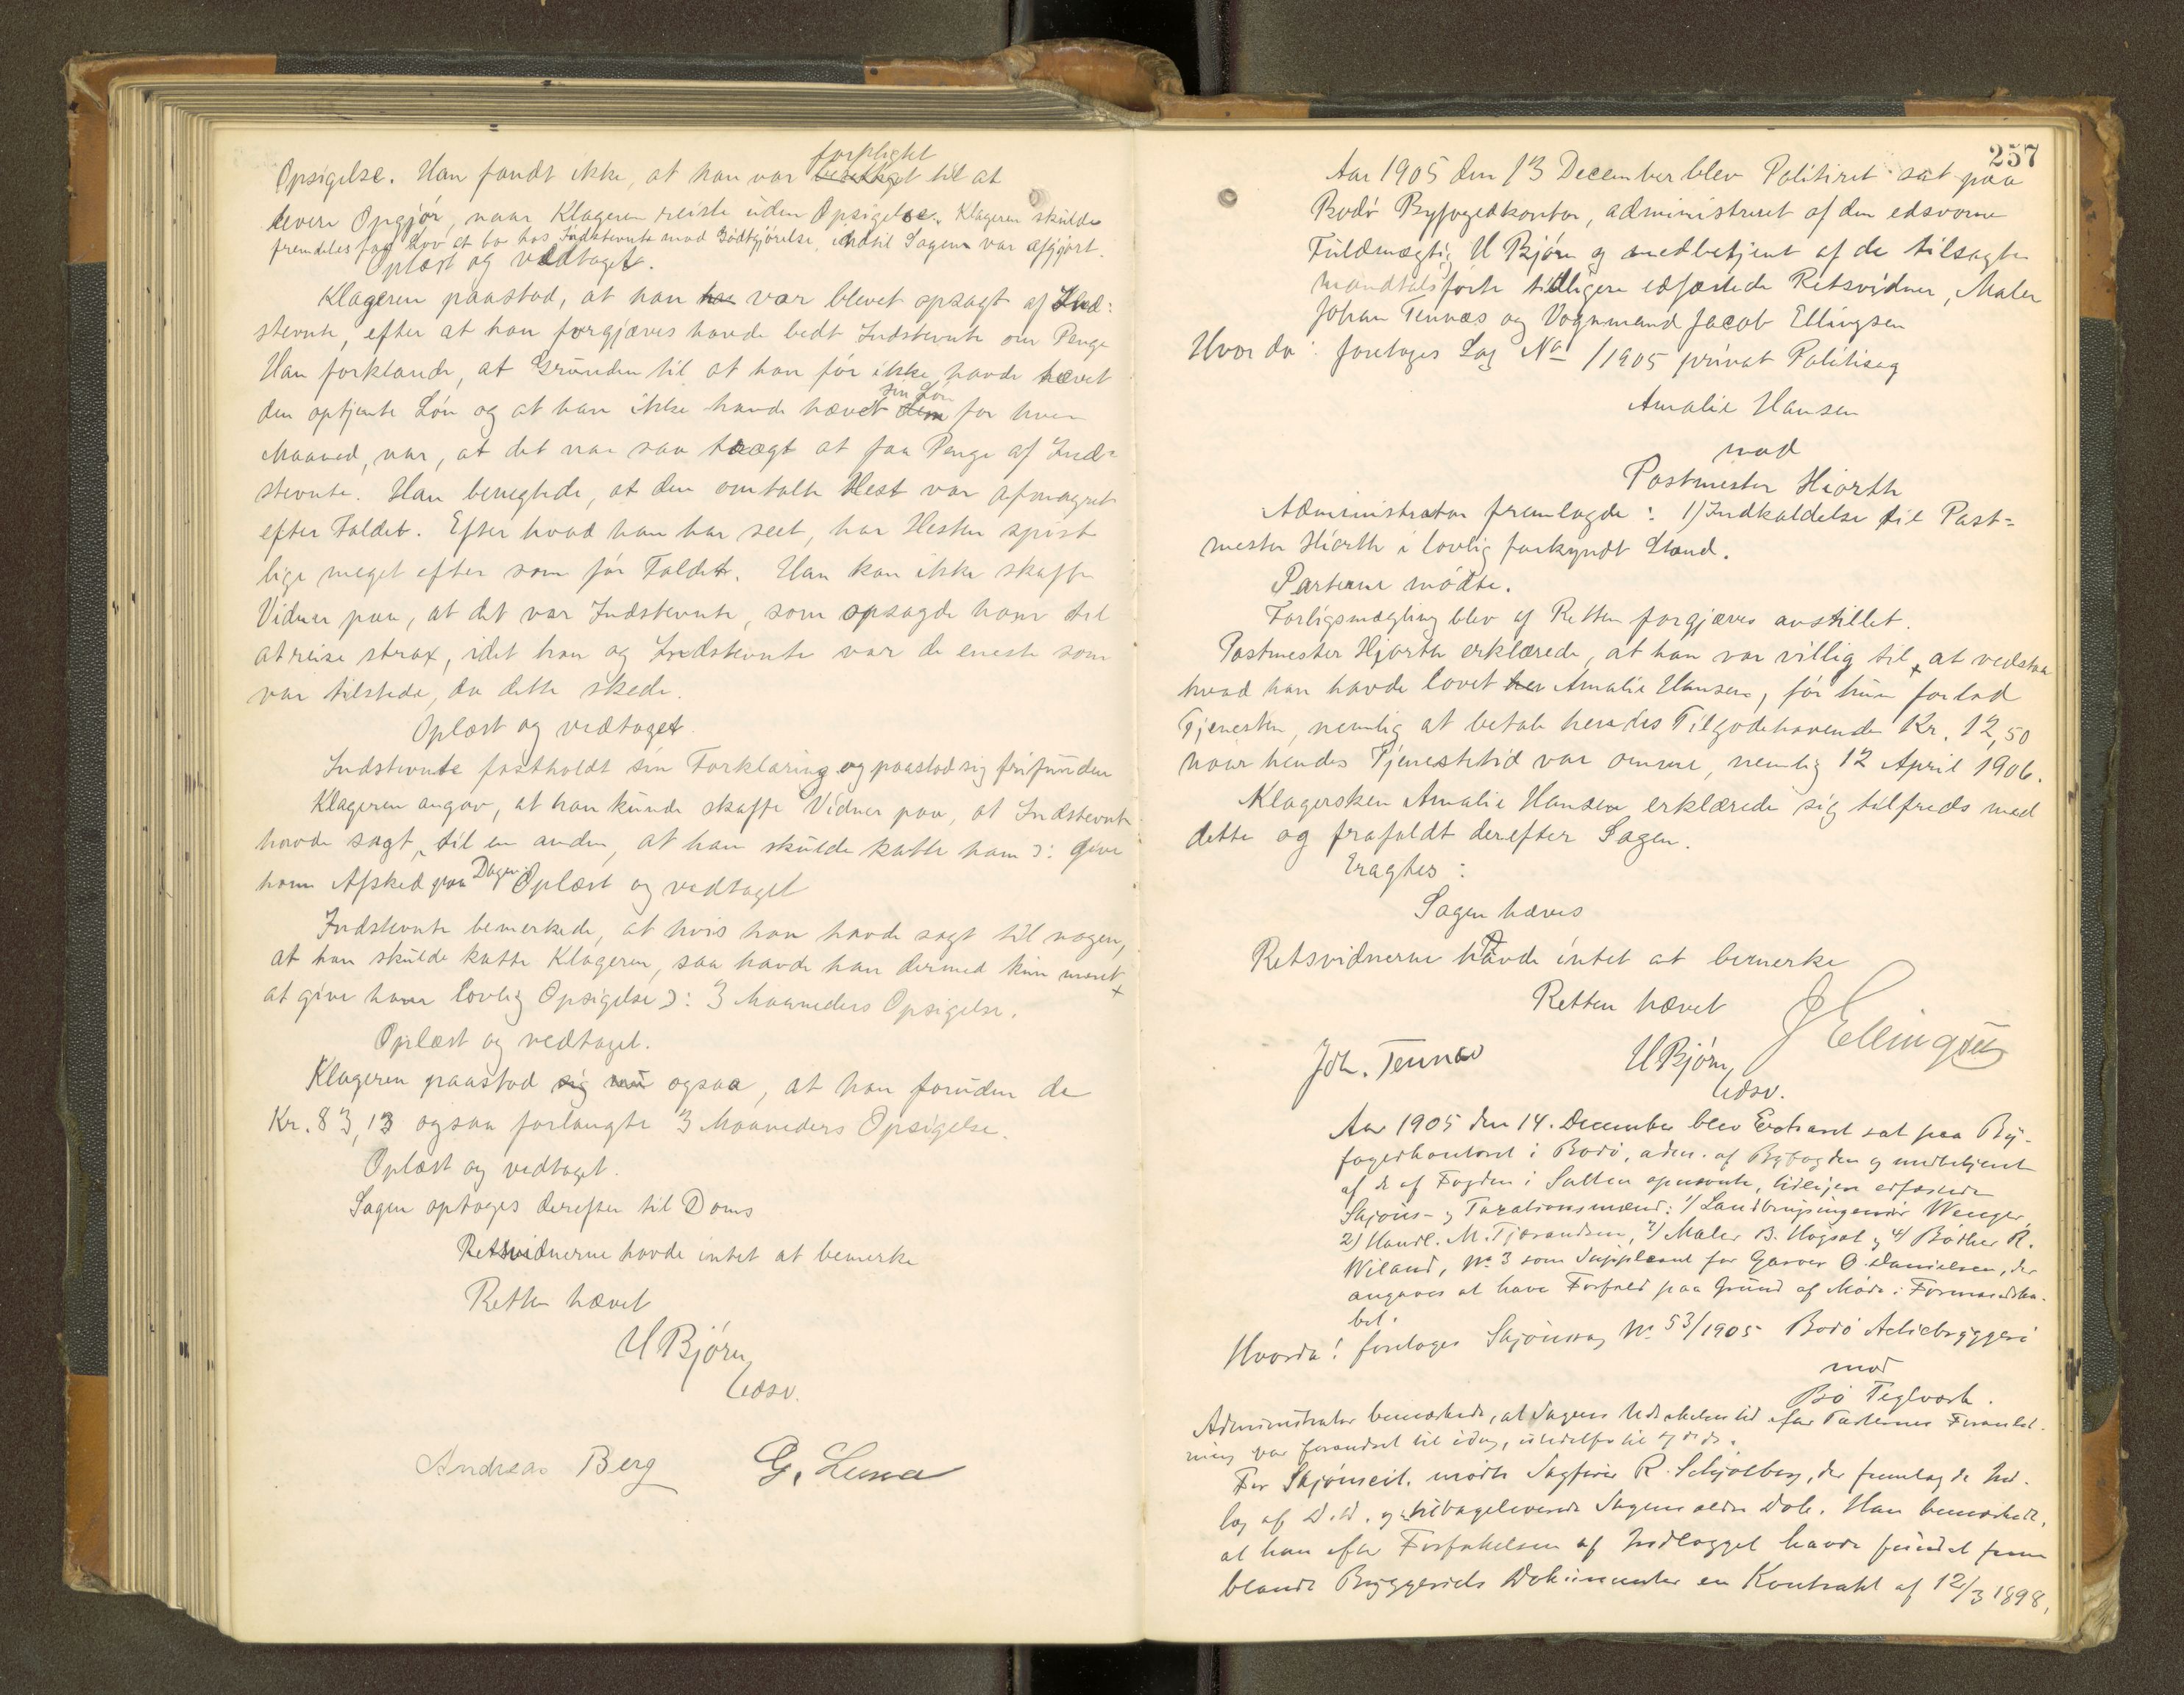 forpligtet
Opsigelse. Han fandt ikke, at han var berettiget til at
levere Opgjør, naar Klageren reiste uden Opsigelse. Klageren skulde
fremdeles faa Lov at bo hos Indstevnte mod Godtgjørelse, indtil Sagen var afgjort.
Oplæst og vedtaget.
Klageren paastod, at han har var blevet opsagt af Ind:
stevnte, efter at han forgjæves havde bedt Indstevnte om Penge
Han forklarede, at Grunden til at han før ikke havde hævet
sin Løn
den optjente Løn og at han ikke havde hævet dem for hver
Maaned, var, at det var saa trægt at faa Penge af Ind=
stevnte. Han benegtede, at den omtalte Hest var afmagret
efter Faldet. Efter hvad han har seet, har Hesten spist
lige meget efter som før Faldet. Han kan ikke skaffe
Vidner paa, at det var Indstevnte, som opsagde ham til
at reise strax, idet han og Indstevnte var de eneste som
var tilstede, da dette skede.
Oplæst og vedtaget.
Indstevnte fastholdt sin Forklaring og paastod sig frifunden
Klageren angav, at han kunde skaffe Vidner paa, at Indstevnte
havde sagt til en anden, at han skulde kaste ham ɔ: give
ham Afsked paa Dagen. Oplæst og vedtaget
Indstevnte bemerkede, at hvis han havde sagt til nogen,
at han skulde kaste Klageren, saa havde han dermed kun ment
at give ham lovlig Opsigelse ɔ: 3 Maaneders Opsigelse.
Oplæst og vedtaget.
Klageren paastod sig nu ogsaa, at han foruden de
Kr. 83,13 ogsaa forlangte 3 Maaneders Opsigelse.
Oplæst og vedtaget.
Sagen optoges derefter til Doms
Retsvidnerne havde intet at bemerke
Retten hævet
U Bjørn
Edsv.
Andreas Berg G. Lund
257
Aar 1905 den 13 December blev Politiret sat paa
Bodø Byfogedkontor, administreret af den edsvorne
Fuldmægtig U Bjørn og medbetjent af de tilsagte
mandtalsførte tidligere edfæstede Retsvidner, Maler
Johan Tennæs og Vognmand Jacob Ellingsen
Hvor da: foretoges Sag No 1/1905 privat Politisag
Amalie Hansen
mod
Postmester Hiorth
Administrator fremlagde: 1) Indkaldelse til Post=
mester Hiorth i lovlig forkyndt Stand.
Parterne mødte.
Forligsmægling blev af Retten forgjæves anstillet.
Postmester Hjorth erklærede, at han var villig til at vedstaa
hvad han havde lovet her Amalie Hansen, før hun forlod
Tjenesten, nemlig at betale hendes Tilgodehavende Kr. 12,50
naar hendes Tjenestetid var omme, nemlig 12 April 1906.
Klagersken Amalie Hansen erklærede sig tilfreds med
dette og frafaldt derefter Sagen.
Eragtes:
Sagen hæves
Retsvidnerne havde intet at bemerke
Retten hævet
J Ellingsen
Joh. Tennæs U Bjørn
Edsv.
Aar 1905 den 14. December blev Extraret sat paa By-
fogedkontoret i Bodø, adm. af Byfogden og medbetjent
af de af Fogden i Salten opnævnte, tidligere edfæstede
Skjøns- og Taxationsmænd: 1) Landbrugsingeniør Wenger,
2) Handl. M. Tjærandsen, 3) Maler B. Høgset og 4) Bødker R.
Wiland, No 3 som Suppleant for Garver O. Danielsen, der
angaves at have Forfald paa Grund af Møde i Formandska-
bet.
Hvorda! foretoges Skjønssag No 53/1905 Bodø Actiebryggeri
mod
Bø Teglværk.
Administrator bemærkede, at Sagens efter Parternes
ning var forandret til idag,
For Skjønscit. mødte Sagfører R. Schjølberg, der fremlagde Ind-
læg af D.D. og tilbageleverede Sagens ældre Dok. Han bemærkede,
at han efter Forfatelsen af Indlægget havde fundet frem
blandt Bryggeriets Dokumenter en Kontrakt af 12/3 1898,